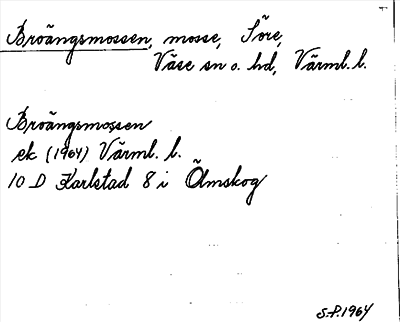 Broängsmossen, mosse, Före,
Väse sn o. hd, Värml. l.
Broängsmossen
ek (1964) Värml. l.
10 D Karlstad 8 i Ölmskog
S.P. 1964